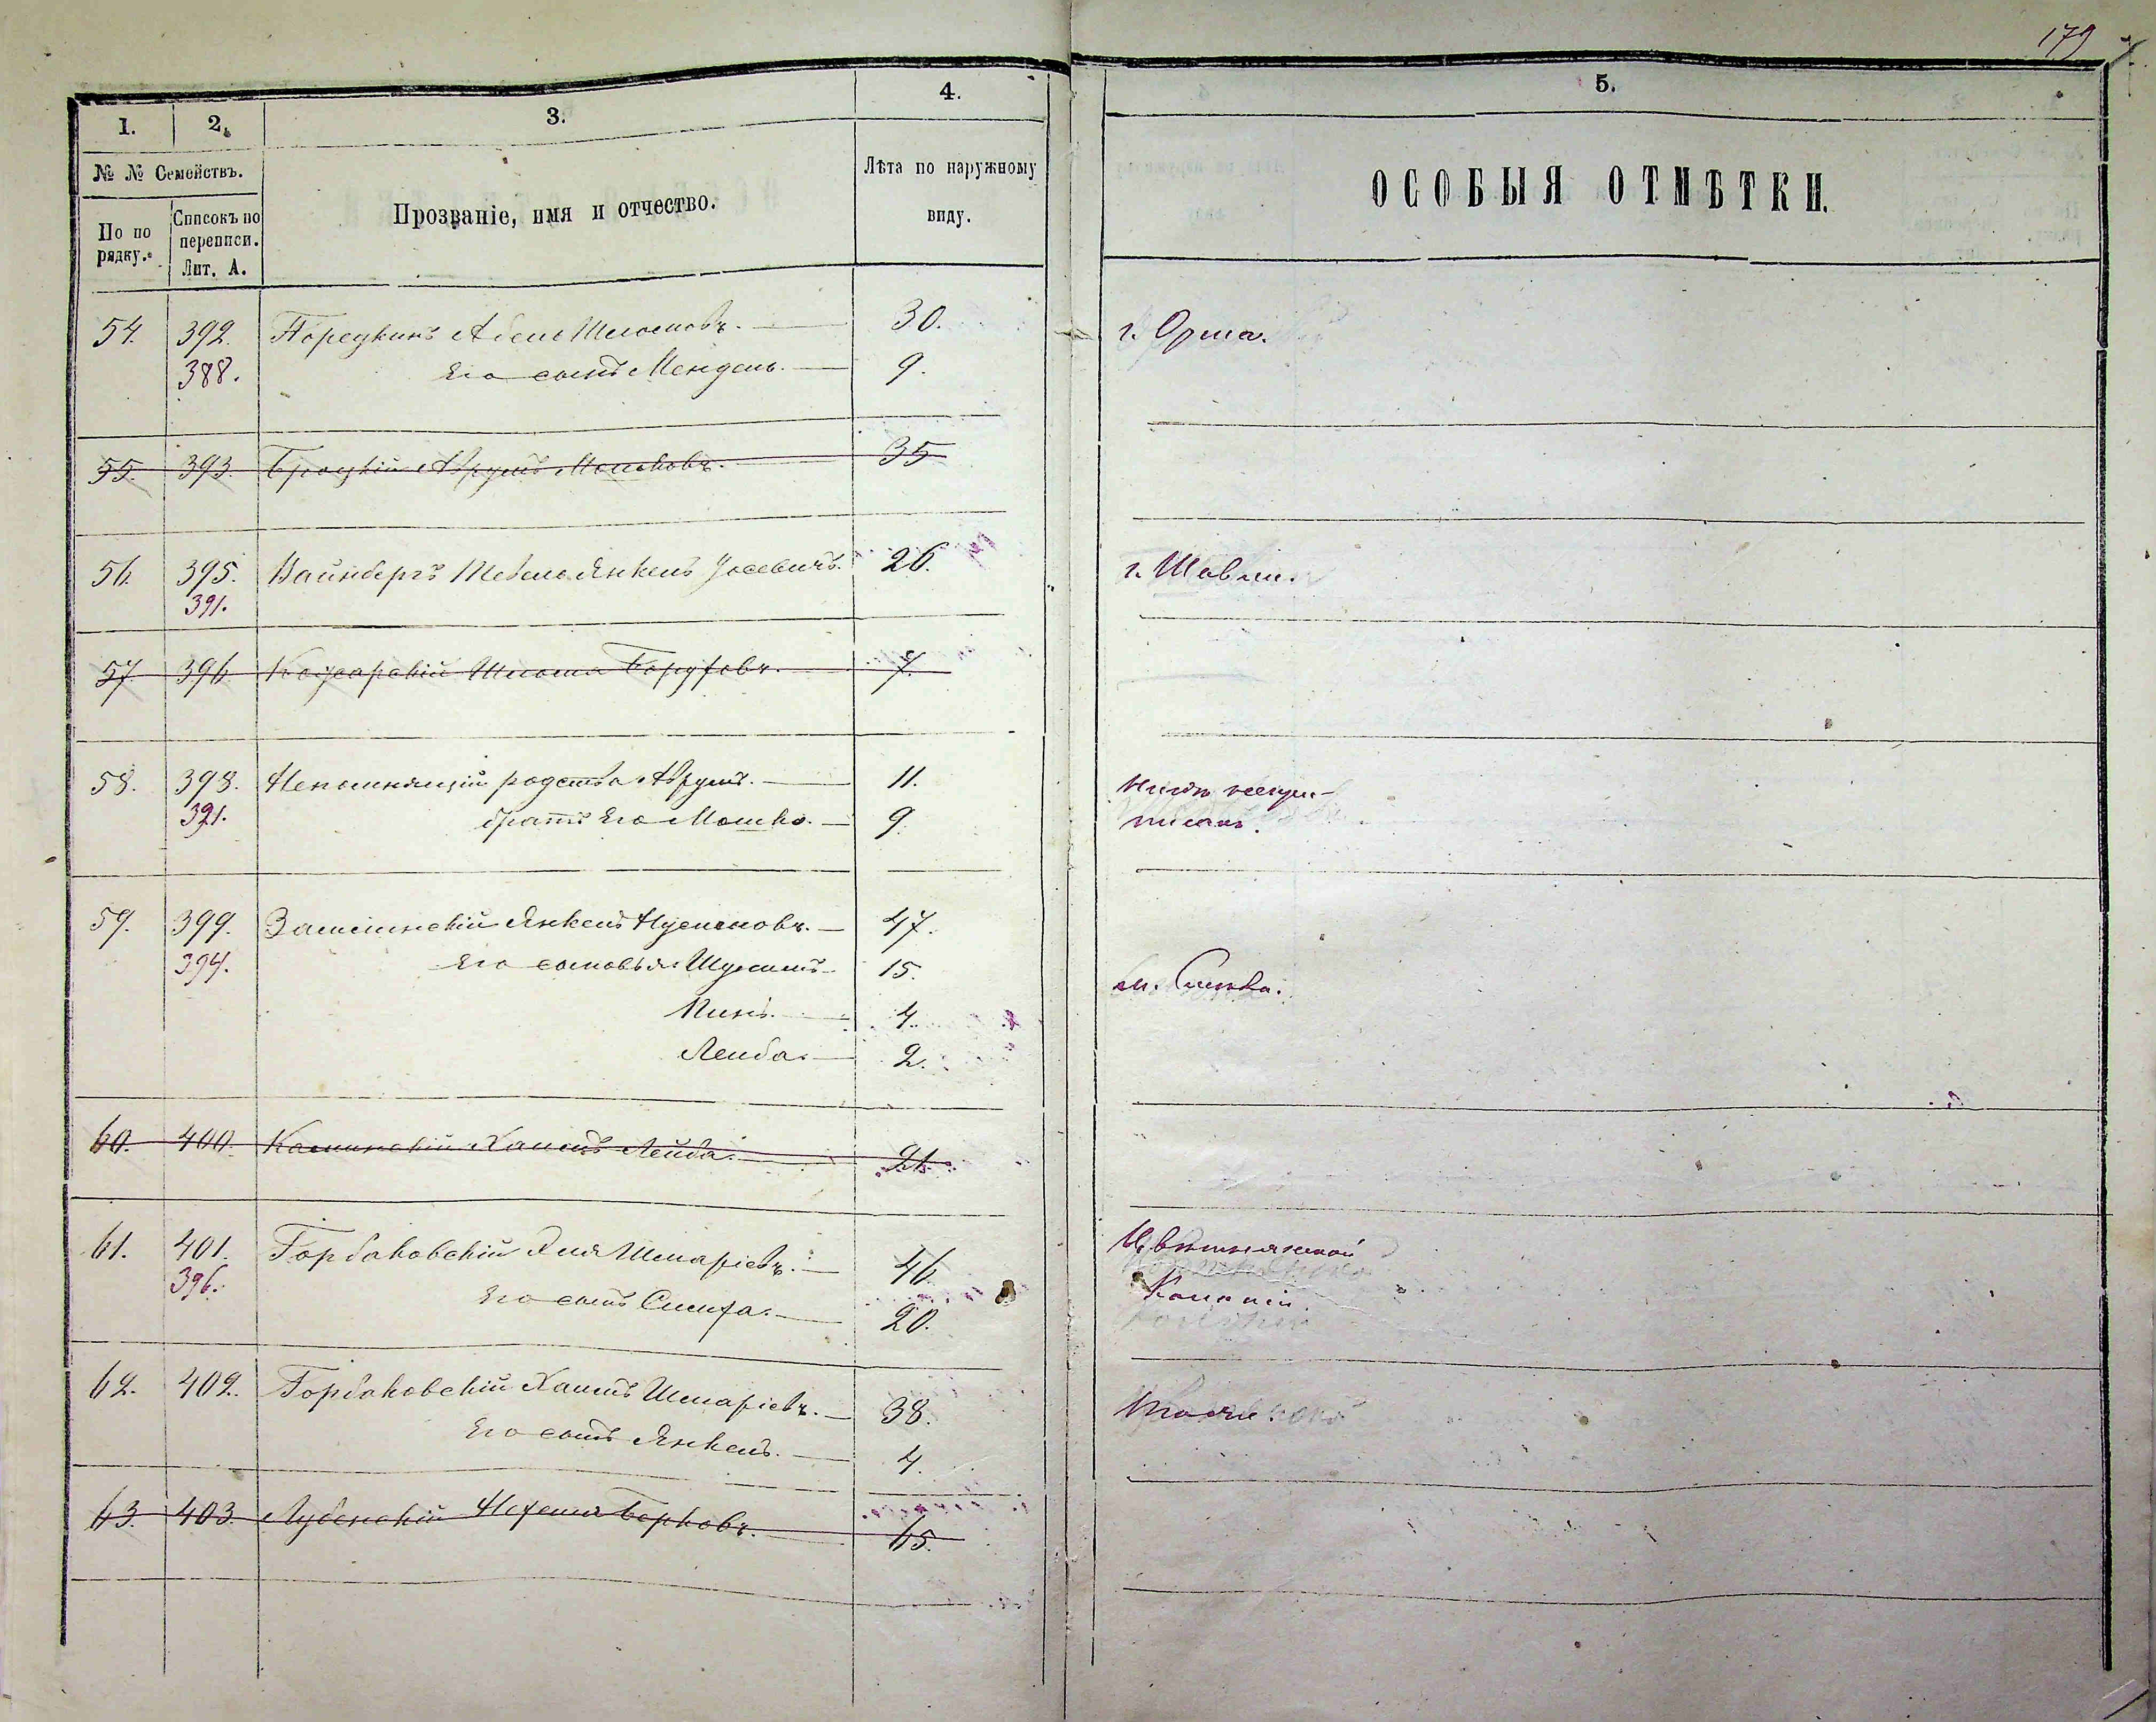 179
1.
2.
3.
4.
5.
№ № Семействъ.
По по
рядку.
Списокъ по
переписи.
Лит. А.
Прозваніе, имя и отчество.
Лѣта по наружному
виду.
ОСОБЫЯ ОТМѢТКИ.
54. 392. Порецкинъ Абель Шломовъ. 30. г. Орша.
388. Его сынъ Мендель. 9.
55. 393. Броцкій Аврумъ Мошковъ. 35
56. 395. Вайнбергъ Тевель Янкель Іосевичъ. 26. г. Шавли.
391.
57. 396. Шлома Борухов. 7.
58. 398. Непомнящій родства Аврумъ. 11.
391. братъ Его Мошко. 9.
59. 399. Янкель 47.
394. Его сыновья 15. м.
Пинь. 4.
Лейба. 2.
60. 400. Хаимъ Лейба. 21.
61. 401. Горбаковскій Эля Шмаріевъ. 46
396. Его сынъ Симха. 20.
62. 402. Горбаковскій Хаимъ Шмаріевъ. 38. Тоже.
Его сынъ Янкель. 4.
63. 403. Лубенскій Нохемя Берковъ. 65.